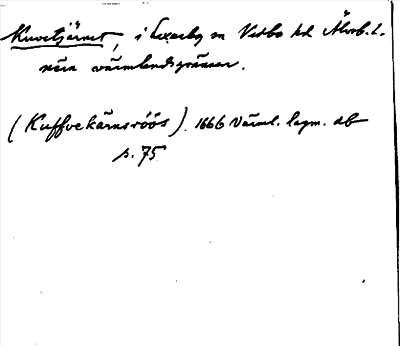 Kuvetjärnet, i Luxarby sn Vedbo hd Älvsb. l.
nära värmlandsgränsen.
(Kuffvekärnsröös). 1666 Värml. lagm. db
s. 75